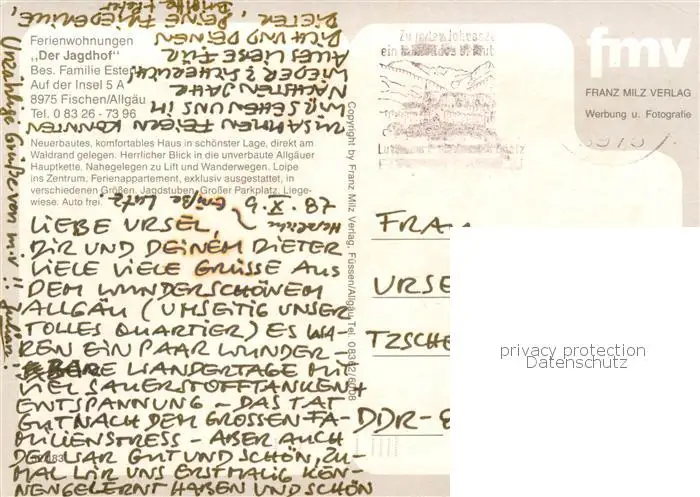 Ferienwohnungen
„Der Jagdhof"
Bes. Familie Este
Auf der Insel 5 A
8975 Fischen/Allgäu
Tel. 0 83 26 - 73 96
Neuerbautes, komfortables Haus in schönster Lage, direkt am
Waldrand gelegen. Herrlicher Blick in die unverbaute Allgäuer
Hauptkette. Nahegelegen zu Lift und Wanderwegen. Loipe
ins Zentrum. Ferienappartement, exklusiv ausgestattet, in
verschiedenen Größen. Jagdstuben. Großer Parkplatz. Liege-
wiese. Auto frei.
9. X. 87
LIEBE URSEL,
DIR UND DEINEM DIETER
VIELE VIELE GRÜSSE AUS
DEM WUNDERSCHÖNEM
ALLGÄU (UMSEITIG UNSER
TOLLES QUARTIER) ES WA-
REN EIN PAAR WUNDER-
BARE WANDERTAGE MIT
VIEL SAUERSTOFFTANKEN +
ENTSPANNUNG - DAS TAT
GUT NACH DEM GROSSEN FA-
MILIENSTRESS - ABER AUCH
DER WAR GUT UND SCHÖN, ZU-
MAL WIR UNS ERSTMALIG KEN-
NENGELERNT HABEN UND SCHÖN
ZUSAMMEN FEIERN KONNTEN
WIR SEHEN UNS IM
NÄCHSTEN JAHR
WIEDER
ALLES LIEBE FÜR
DICH UND DEINEN
DIETER, DEINE FRIEDERIKE,
Brigitte + Peter
Herzliche
Grüße Lutz.
Unzählige Grüße von mir!!
Copyright by Franz Milz Verlag, Füssen/Allgäu Tel. 08362/6008
fmv
FRANZ MILZ VERLAG
Werbung u. Fotografie
8975
FRAU
URSE
TZSCHE
DDR-
privacy protection
Datenschutz